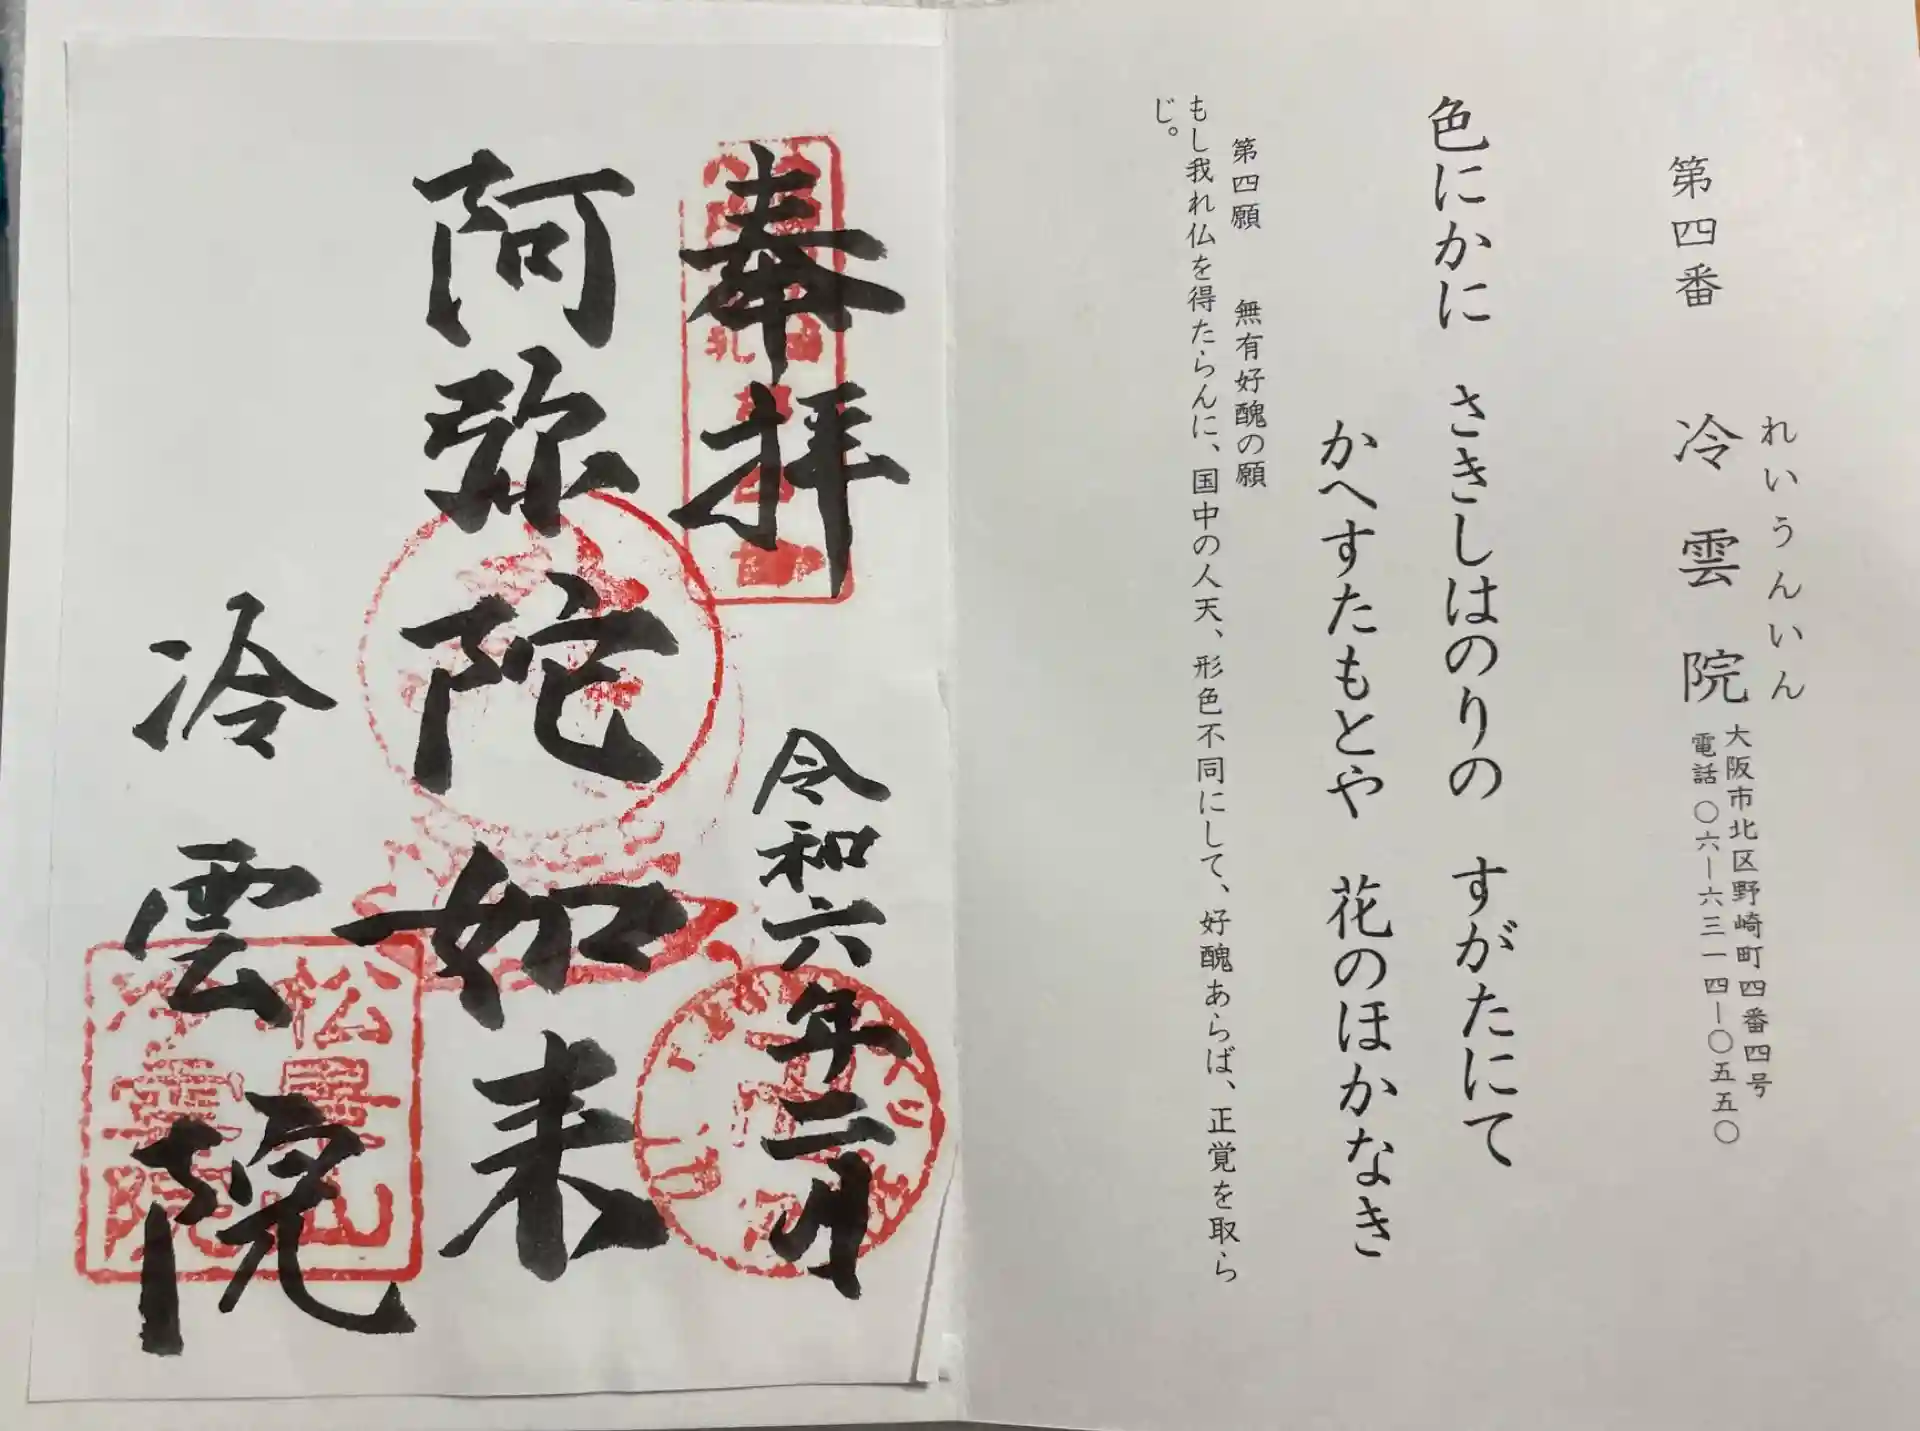 第四番
れいうんいん
冷雲院
大阪市北区野崎町四番四号
電話〇六ー六三一四ー〇五五〇
色にかに さきしはのりの すがたにて
かへすたもとや 花のほかなき
第四願 無有好醜の願
もし我れ仏を得たらんに、国中の人天、形色不同にして、好醜あらば、正覚を取ら
じ。
奉拝
令和六年二月
阿弥陀如来
冷雲院